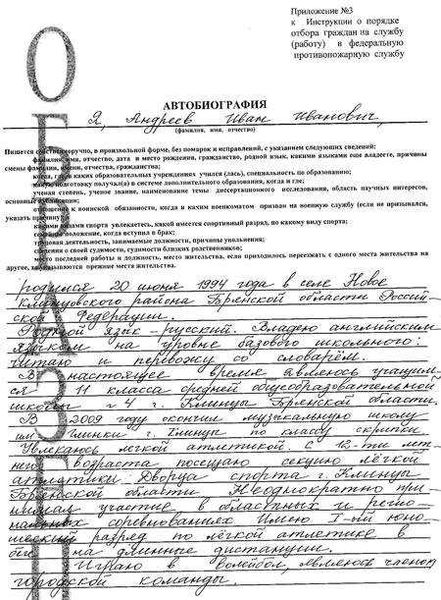 Приложение №3
к Инструкции о порядке
отбора граждан на службу
(работу) в федеральную
противопожарную службу
ОБРАЗЕЦ
АВТОБИОГРАФИЯ
Я, Андреев Иван Иванович,
(фамилия, имя, отчество)
Пишется собственноручно, в произвольной форме, без помарок и исправлений, с указанием следующих сведений:
фамилия, имя, отчество, дата и место рождения, гражданство, родной язык, какими языками еще владеете, причины
смены фамилии, имени, отчества, гражданства;
когда, в каких образовательных учреждениях учился (лась), специальность по образованию;
подготовку получил(а) в системе дополнительного образования, когда и где;
ученая степень, ученое звание, наименование темы диссертационного исследования, область научных интересов,
основные
к воинской обязанности, когда и каким военкоматом призван на военную службу (если не призывался,
указать причину)
видами спорта увлекаетесь, какой имеется спортивный разряд, по какому виду спорта;
семейное положение, когда вступил в брак;
трудовая деятельность, занимаемые должности, причины увольнения;
сведения о своей судимости, судимости близких родственников;
последней работы и должность, место жительства, если приходилось переезжать с одного места жительства на
другое, указываются прежние места жительства.
родился 20 июня 1994 года в селе Новое
Клинцовского района Брянской области Россий-
ской Федерации.
Родной язык - русский. Владею английским
языком на уровне базового школьного:
читаю и перевожу со словарём.
В настоящее время являюсь учащим-
ся 11 класса средней общеобразовательной
школы № 4 г. Клинцы Брянской области.
В 2009 году окончил музыкальную школу
им. Глинки г. Клинцы по классу скрипки
Увлекаюсь лёгкой атлетикой. С 12-ти лет-
него возраста посещаю секцию лёгкой
атлетики Дворца спорта г. Клинцы
Брянской области Неоднократно при-
нимал участие в областных и регио-
нальных соревнованиях Имею I-ый юно-
шеский разряд по лёгкой атлетике в
беге на длинные дистанции.
Играю в волейбол, являюсь членом
городской команды.